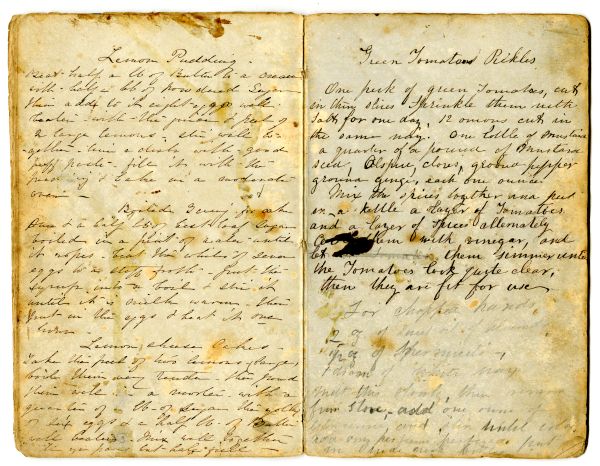 Lemon Pudding.
Beat half a lb of Butter to a cream
with half a lb of powdered Sugar
then add to it eight eggs well
beaten with the juice & peel of
2 large lemons, stir well to-
gether line a dish with good
puff paste fill it with the
pudding & bake in a moderate
oven
Boiled Icing for cake
One & a half lbs best loaf Sugar
boiled in a pint of water until
it ropes, beat the whites of seven
eggs to a stiff froth. Put the
Syrup into a bowl & stir it
until it is milk warm, then
put in the eggs & beat it one
hour
Lemon cheese Cakes
Take the peel of two lemons large
boil them very tender, then pound
them well in a mortar with a
quarter of lb of Sugar the yolks
of six eggs & a half lb of Butter
well beaten. Mix well together
half full
Green Tomatoes Pickles
One peck of green Tomatoes, cut
in thin slices Sprinkle them with
Salt for one day, 12 onions cut in
the same way. One bottle of Mustard
a quarter of a pound of Mustard
seed, Alspice, cloves, ground pepper
ground ginger, each one ounce.
Mix the spices together and put
in a kettle a layer of Tomatoes
and a layer of Spices alternately
them with vinegar, and
let them simmer until
the Tomatoes look quite clear,
then they are fit for use
For chopped hands
2 oz of
oz of Spermaceti
White Wax
Melt this slowly, then
from stove, add one ounce of
and stir until cold
add any perfume